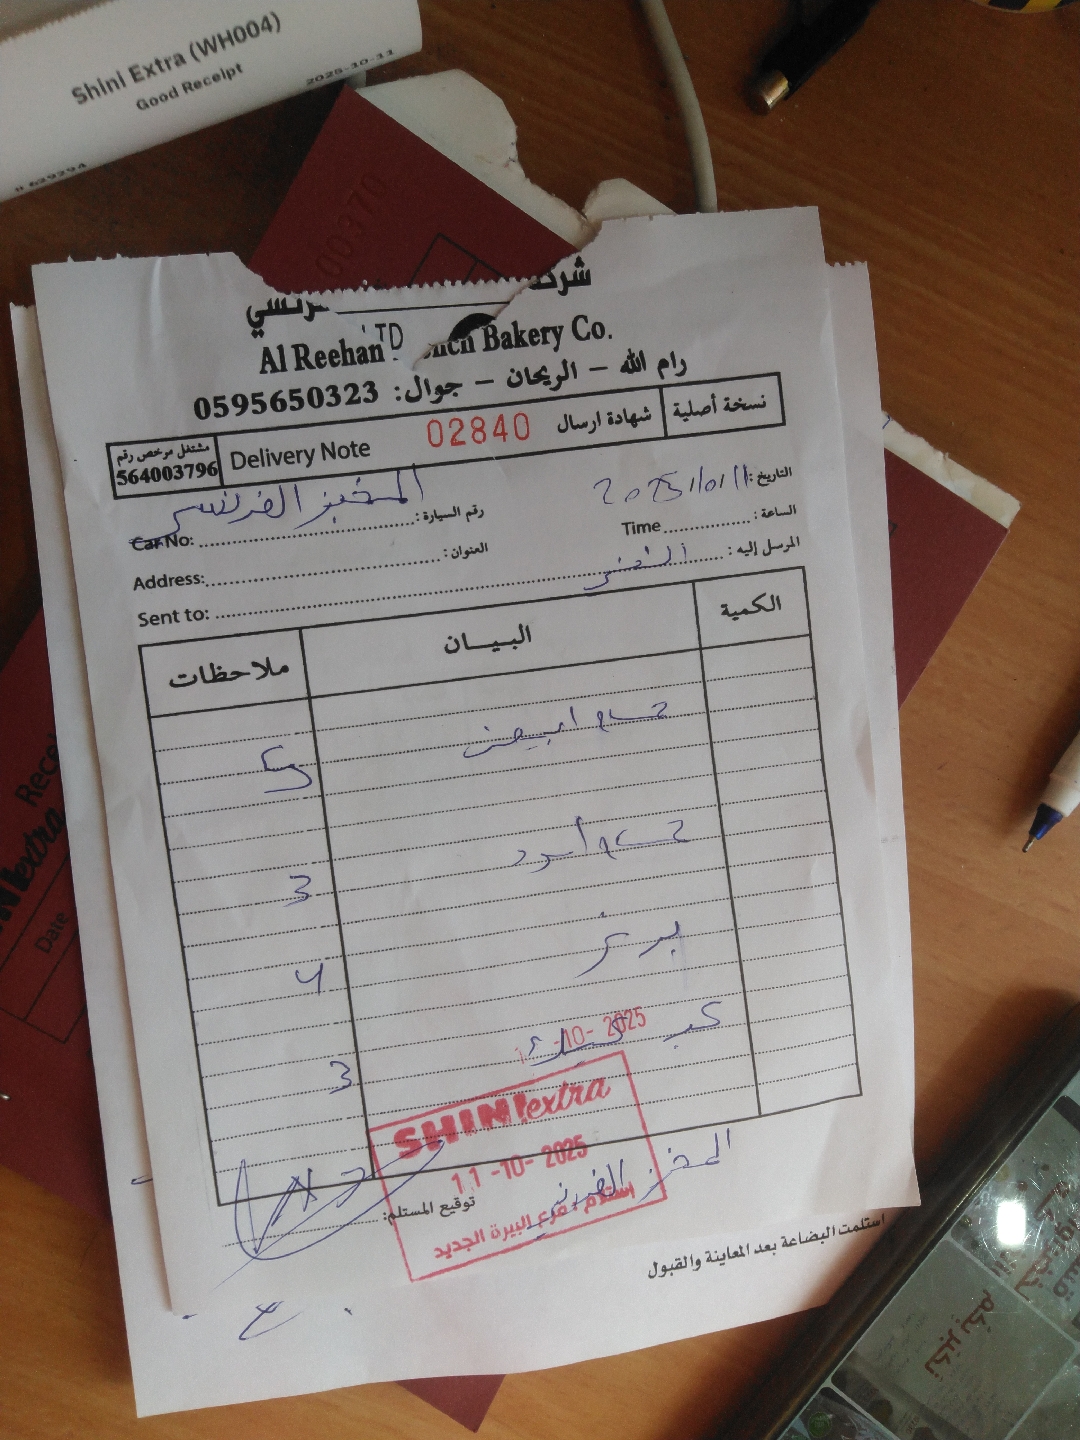 Shini Extra (WH004)
Good Receipt
2025-10-11
# 629294
00370
شركة
رنسي
Al Reehan LTD ench Bakery Co.
رام الله - الريحان - جوال: 0595650323
نسخة أصلية
شهادة ارسال 02840 Delivery Note
مشتغل مرخص رقم
564003796
التاريخ: 2025/10/11
المخبز الفرنسي
رقم السيارة: Car No:
الساعة: Time
العنوان: Address:
المرسل إليه: الشني Sent to:
الكمية البيـــان ملاحظات
حمام ابيض 5
حمام أسود 3
برغر 4
3
-10-2025
SHINI extra
11-10-2025
استلام فرع البيرة الجديد
المخبز الفرنسي
توقيع المستلم:
استلمت البضاعة بعد المعاينة والقبول
Recei
extra
Date